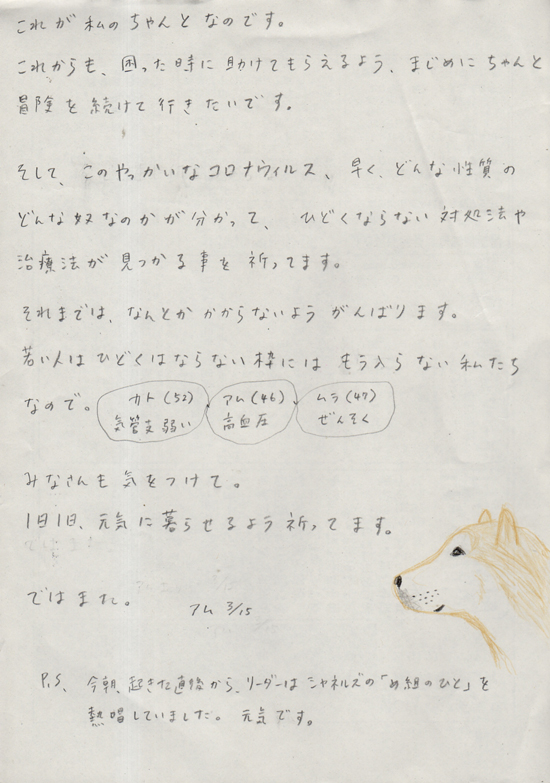 これが私のちゃんとなのです。
これからも、困った時に助けてもらえるよう、まじめにちゃんと
冒険を続けて行きたいです。
そして、このやっかいなコロナウィルス、早く、どんな性質の
どんな奴なのかが分かって、ひどくならない対処法や
治療法が見つかる事を祈ってます。
それまでは、なんとかかからないようがんばります。
若い人はひどくはならない枠にはもう入らない私たち
なので。
カト(52)
気管支弱い
アム(46)
高血圧
ムラ(47)
ぜんそく
みなさんも気をつけて。
1日1日、元気に暮らせるよう祈ってます。
ではまた。
アム 3/15
P.S、今朝、起きた直後から、リーダーはシャネルズの「め組のひと」を
熱唱していました。元気です。